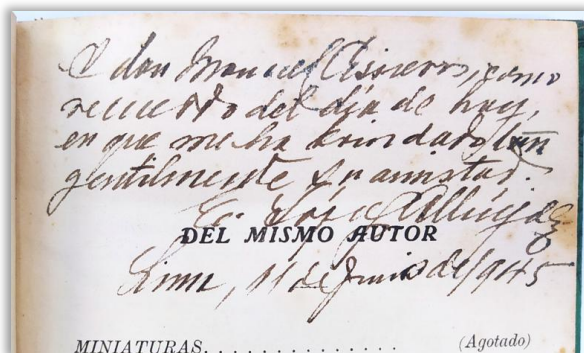 A don Manuel Cisneros, como
recuerdo del día de hoy,
en que me ha brindado tan
gentilmente su amistad.
E. López Albújar
DEL MISMO AUTOR
Lima, 11 de Junio de 1945
MINIATURAS. . . . . . . . . . . . . . (Agotado)